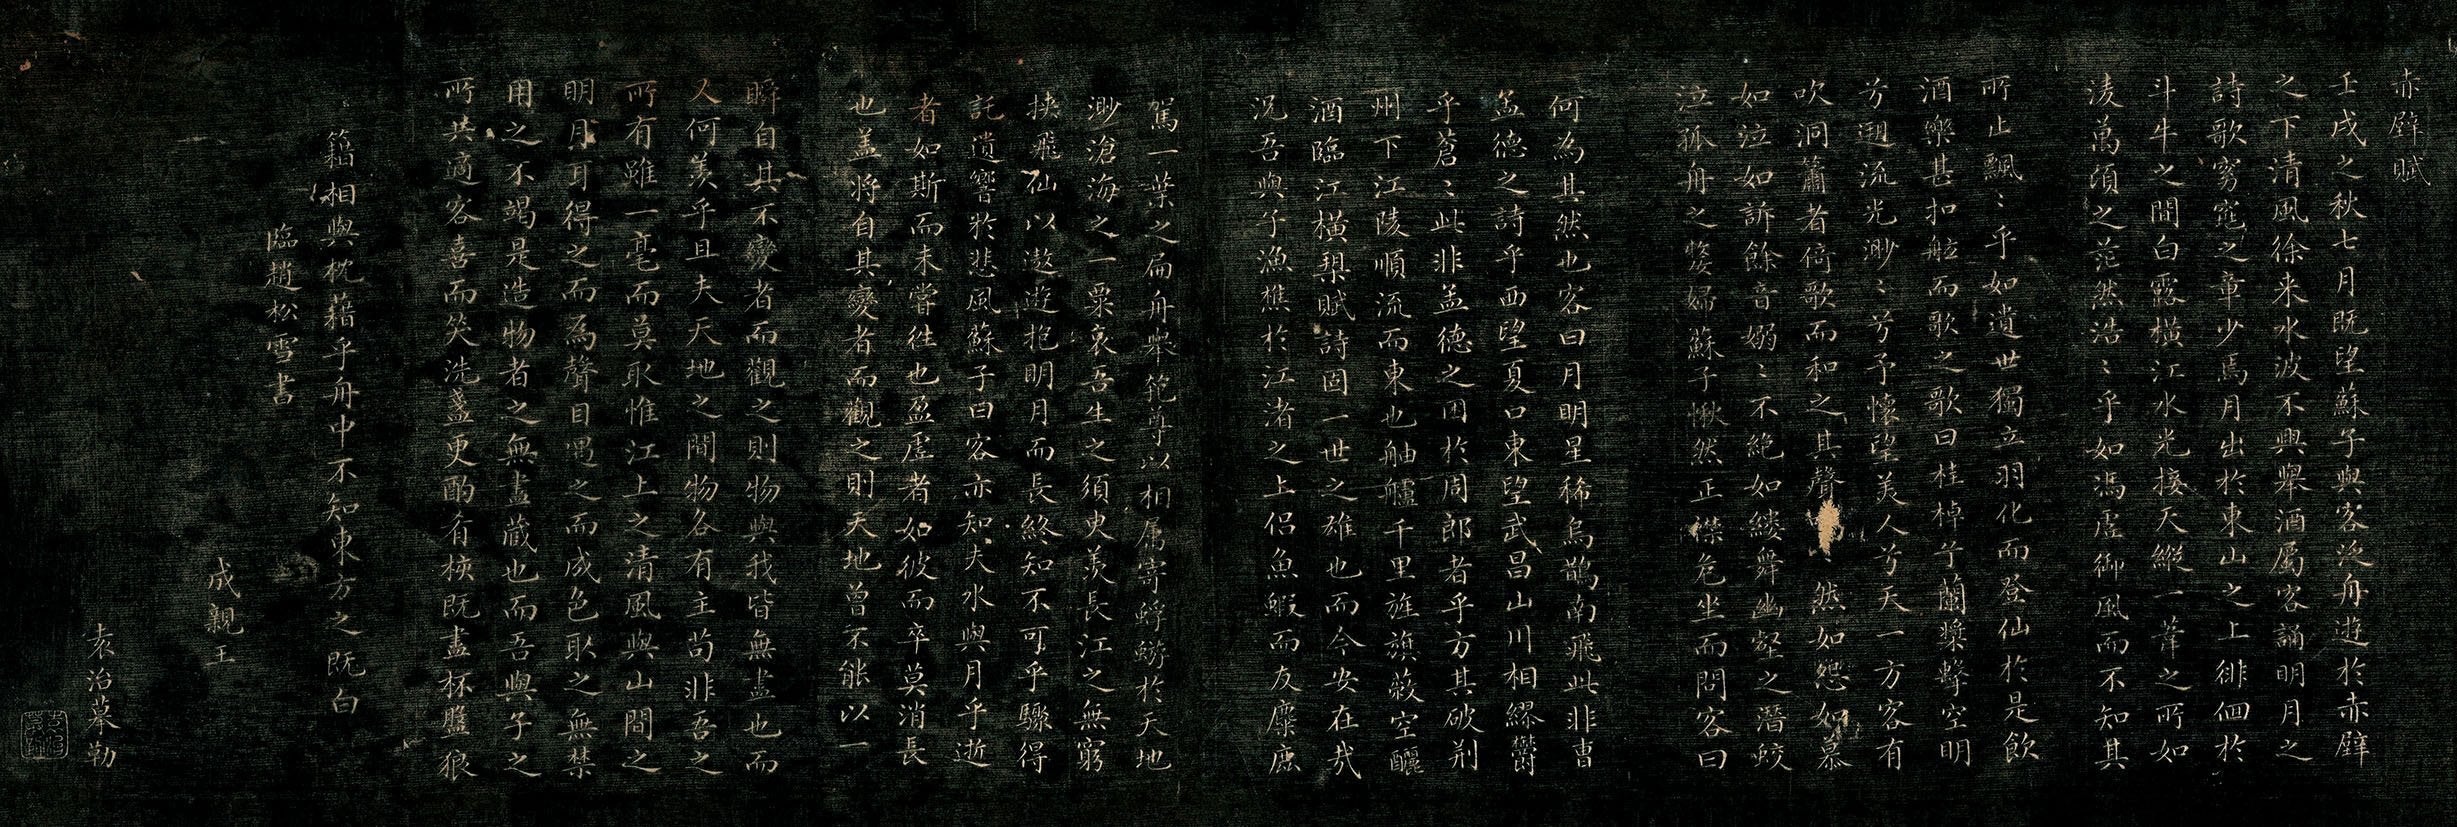 赤壁賦
壬戌之秋七月既望蘇子與客泛舟遊於赤壁
之下清風徐来水波不興舉酒屬客誦明月之
詩歌窈窕之章少焉月出於東山之上徘徊於
斗牛之間白露橫江水光接天縱一葦之所如
淩萬頃之茫然浩〻乎如馮虛御風而不知其
所止飄〻乎如遺世獨立羽化而登仙於是飲
酒樂甚扣舷而歌之歌曰桂棹兮蘭槳擊空明
兮遡流光渺〻兮予懷望美人兮天一方客有
吹洞簫者倚歌而和之其聲然如怨如慕
如泣如訴餘音嫋〻不絶如縷舞幽壑之潛蛟
泣孤舟之嫠婦蘇子愀然正襟危坐而問客曰
何為其然也客曰月明星稀烏鵲南飛此非曹
孟德之詩乎西望夏口東望武昌山川相繆欝
乎蒼〻此非孟德之困於周郎者乎方其破荆
州下江陵順流而東也舳艫千里旌旗蔽空釃
酒臨江橫槊賦詩固一世之雄也而今安在哉
況吾與子漁樵於江渚之上侶魚蝦而友麋鹿
駕一葉之扁舟舉匏尊以相屬寄蜉蝣於天地
渺滄海之一粟哀吾生之須臾羨長江之無窮
挾飛仙以遨遊抱明月而長終知不可乎驟得
託遺響於悲風蘇子曰客亦知夫水與月乎逝
者如斯而未嘗往也盈虛者如彼而卒莫消長
也盖將自其變者而觀之則天地曾不能以一
瞬自其不變者而觀之則物與我皆無盡也而
又何羨乎且夫天地之間物各有主苟非吾之
所有雖一毫而莫取惟江上之清風與山間之
明月耳得之而為聲目遇之而成色取之無禁
用之不竭是造物者之無盡蔵也而吾與子之
所共適客喜而笑洗盞更酌肴核既盡杯盤狼
籍相與枕藉乎舟中不知東方之既白
臨趙松雪書
成親王
袁治摹勒